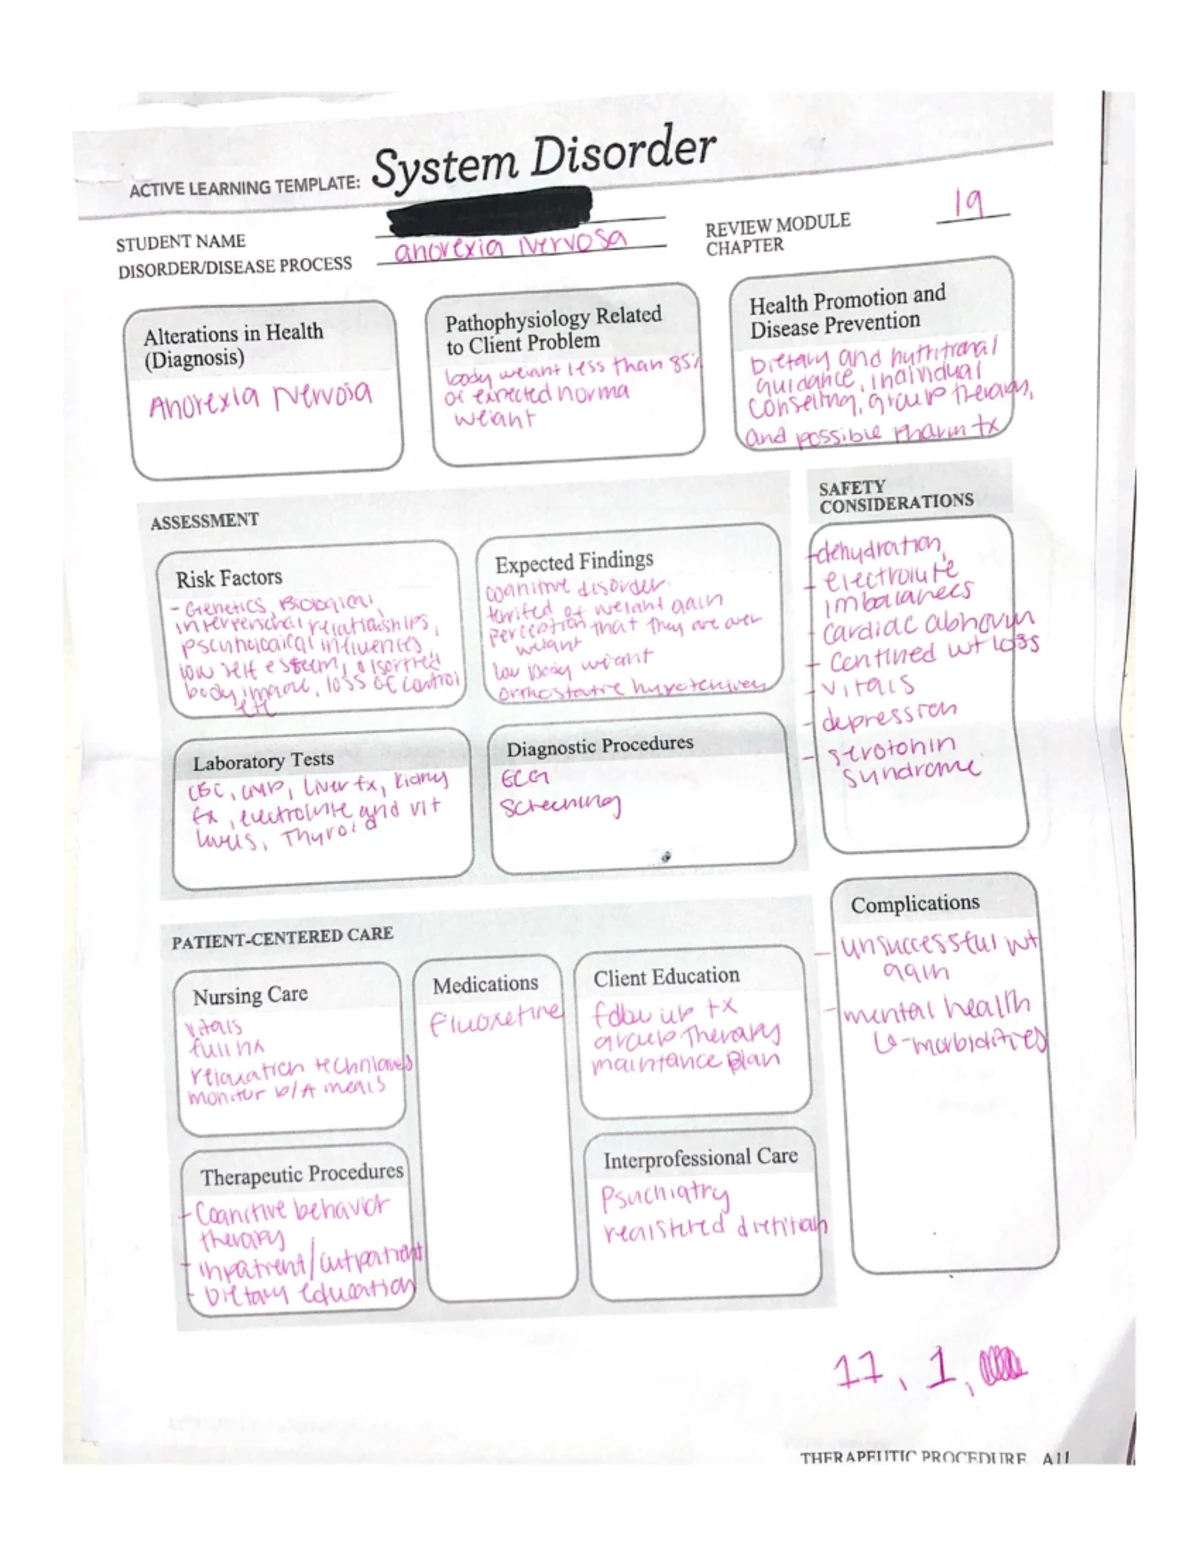 ACTIVE LEARNING TEMPLATE: System Disorder
STUDENT NAME
DISORDER/DISEASE PROCESS anorexia Nervosa
REVIEW MODULE
CHAPTER 19
Alterations in Health
(Diagnosis)
Anorexia Nervosa
Pathophysiology Related
to Client Problem
body weight less than 85%
of expected norma
weight
Health Promotion and
Disease Prevention
Dietary and nutritional
guidance, individual
Conseling, group therapy,
and possible Pharm tx
ASSESSMENT
SAFETY
CONSIDERATIONS
Risk Factors
- Genetics, Biological,
interpersonal relationships,
psychological influences,
low self esteem, disorted
body image, loss of control
etc
Expected Findings
cognitive disorder
terrified of weight gain
perception that they are over
weight
low body weight
orthostatic hypotension
-dehydration,
- electrolyte
imbalances
- cardiac abnorm
- continued wt loss
- vitals
- depression
- serotonin
syndrome
Laboratory Tests
CBC, CMP, Liver fx, kidney
fx, electrolyte and vit
levels, Thyroid
Diagnostic Procedures
ECG
Screening
PATIENT-CENTERED CARE
Complications
- unsuccessful wt
gain
- mental health
co-morbidities
Nursing Care
vitals
full hx
relaxation techniques
monitor b/A meals
Medications
fluoxetine
Client Education
follow up tx
group Therapy
maintance plan
Therapeutic Procedures
- Cognitive behavior
therapy
- inpatient/outpatient
- Dietary education
Interprofessional Care
Psychiatry
registered dietitain
17, 1,
THERAPEUTIC PROCEDURE A11